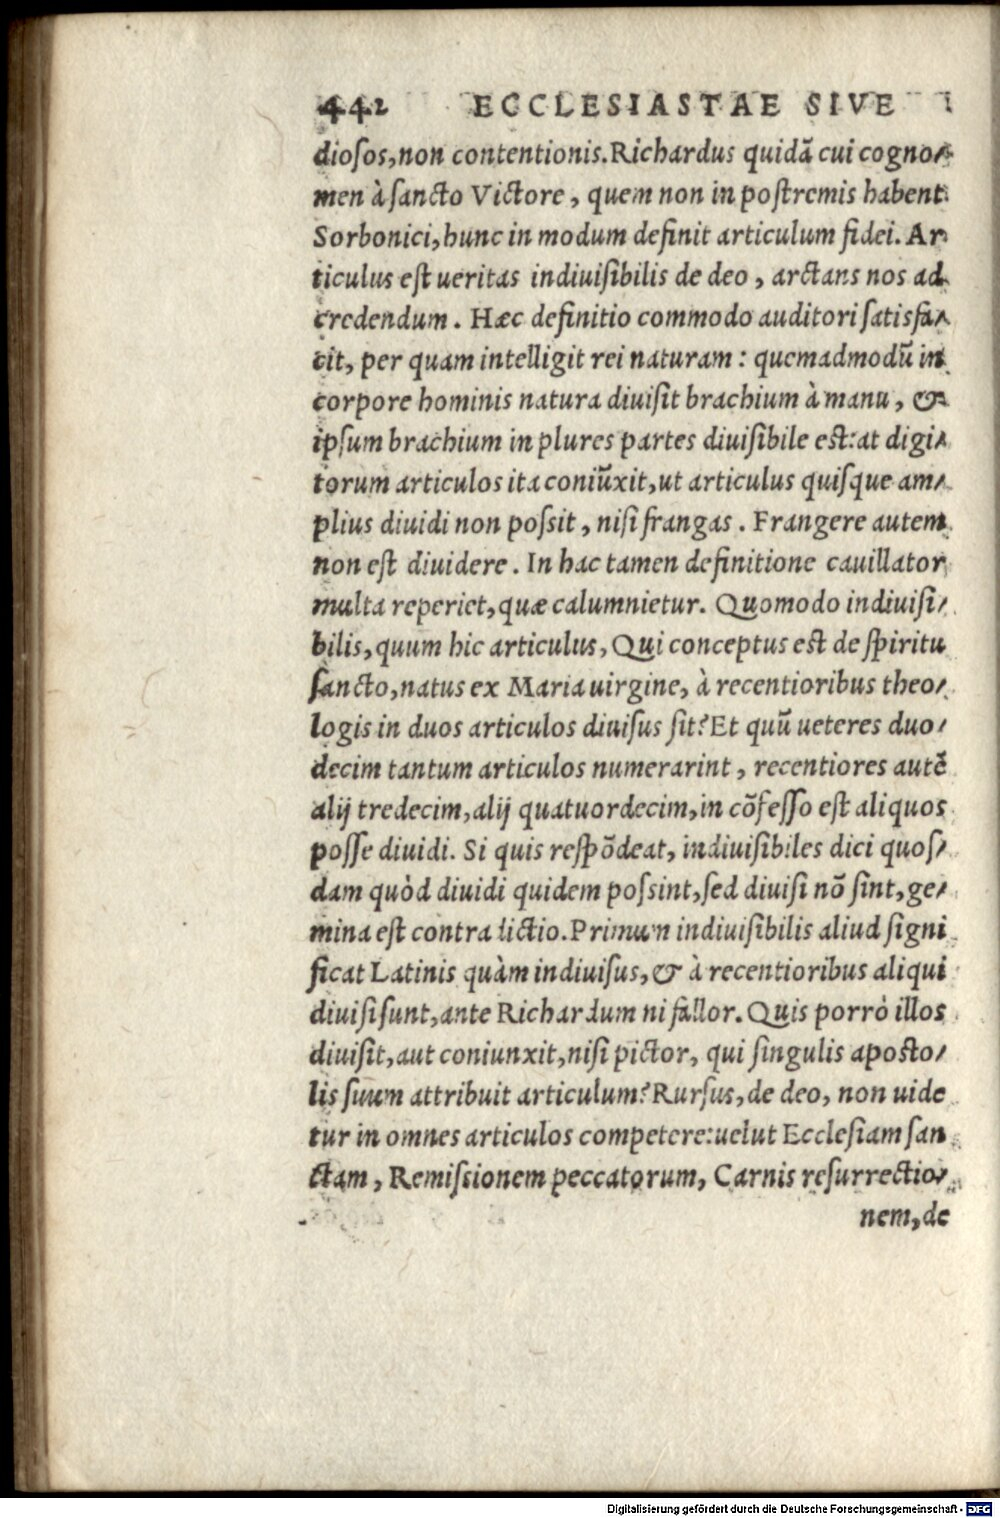 442 ECCLESIASTAE SIVE
dioſos, non contentionis. Richardus quidã cui cogno-
men à ſancto Victore, quem non in poſtremis habent
Sorbonici, hunc in modum definit articulum fidei. Ar
ticulus eſt ueritas indiuiſibilis de deo, arctans nos ad
credendum. Hæc definitio commodo auditori ſatisfa-
cit, per quam intelligit rei naturam: quemadmodũ in
corpore hominis natura diuiſit brachium à manu, &
ipſum brachium in plures partes diuiſibile eſt: at digi-
torum articulos ita coniũxit, ut articulus quiſque am-
plius diuidi non poſsit, niſi frangas. Frangere autem
non eſt diuidere. In hac tamen definitione cauillator
multa reperiet, quæ calumnietur. Quomodo indiuiſi-
bilis, quum hic articulus, Qui conceptus eſt de ſpiritu
ſancto, natus ex Maria uirgine, à recentioribus theo-
logis in duos articulos diuiſus ſit? Et quũ ueteres duo-
decim tantum articulos numerarint, recentiores autẽ
alij tredecim, alij quatuordecim, in cõfeſſo eſt aliquos
poſſe diuidi. Si quis reſpõdeat, indiuiſibiles dici quoſ-
dam quòd diuidi quidem poſsint, ſed diuiſi nõ ſint, ge-
mina eſt contradictio. Primum indiuiſibilis aliud ſigni
ficat Latinis quàm indiuiſus, & à recentioribus aliqui
diuiſi ſunt, ante Richardum ni fallor. Quis porrò illos
diuiſit, aut coniunxit, niſi pictor, qui ſingulis apoſto-
lis ſuum attribuit articulum? Rurſus, de deo, non uide
tur in omnes articulos competere: uelut Eccleſiam ſan
ctam, Remiſsionem peccatorum, Carnis reſurrectio-
nem, de
Digitalisierung gefördert durch die Deutsche Forschungsgemeinschaft - DFG